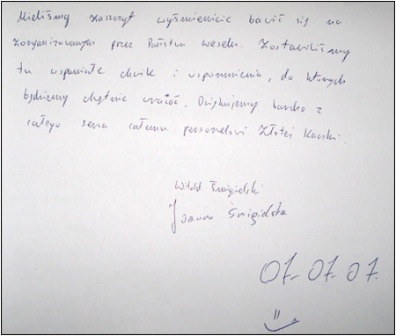 Mieliśmy zaszczyt wyśmienicie bawić się na
zorganizowanym przez Państwa weselu. Zostawiliśmy
tu wspaniałe chwile i wspomnienia, do których
będziemy chętnie wracać. Dziękujemy bardzo z
całego serca całemu personelowi Złotej Kaczki.
Witold Śmigielski
Joanna Śmigielska
07.07.07.